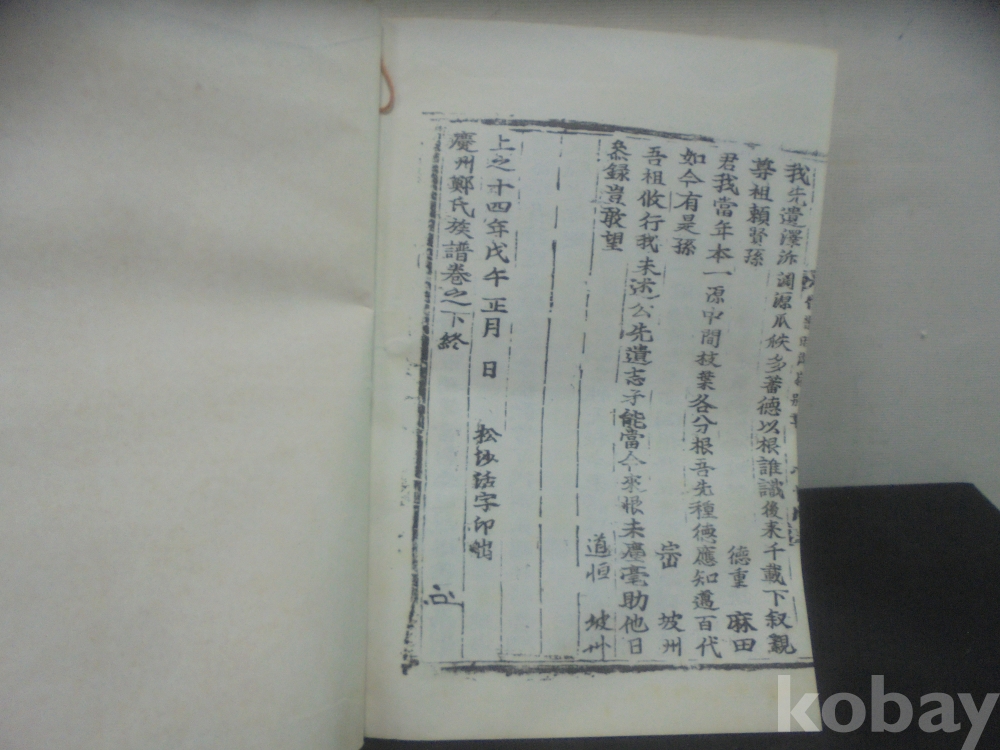 我先遺澤派調源瓜瓞多蕃德以根誰識後來千載下叙親
尊祖賴賢孫 德重 麻田
君我當年本一源中間枝葉各分根吾先種德應知邁百代
如今有是孫 坡州
吾祖攸行我未述公先遺志子能當今來恨未塵毫助他日
叅錄豈敢望 道恒 坡州
上之十四年戊午正月 日 松 活字印
慶州鄭氏族譜卷之下終
kobay